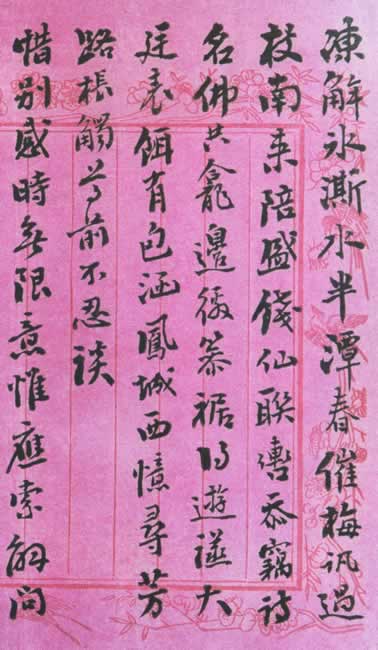 凍解氷澌水半潭春催梅訊過
枝南来陪盛餞仙聯轡忝竊詩
名佛共龕邊徼裾遊大
廷表餌有包涵鳳城西憶尋芳
路棖觸尊前不忍談
惜別感時無限意惟應索解問